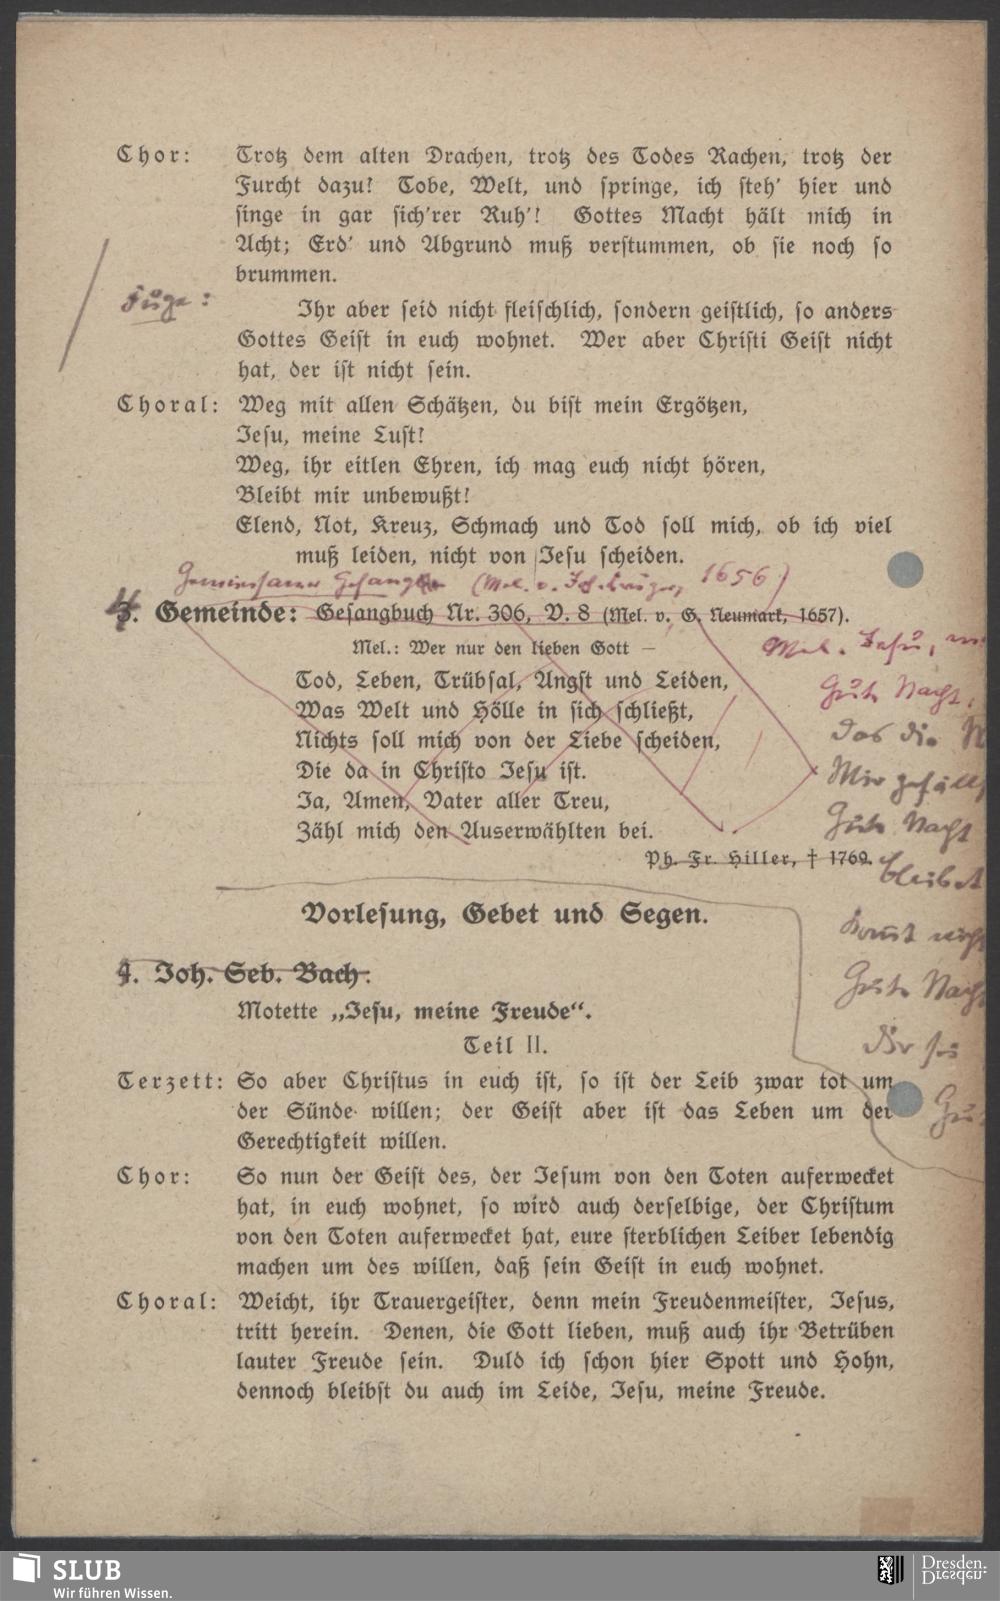 Chor: Trotz dem alten Drachen, trotz des Todes Rachen, trotz der
Furcht dazu! Tobe, Welt, und springe, ich steh' hier und
singe in gar sich'rer Ruh'! Gottes Macht hält mich in
Acht; Erd' und Abgrund muß verstummen, ob sie noch so
brummen.
Fuge:
Ihr aber seid nicht fleischlich, sondern geistlich, so anders
Gottes Geist in euch wohnet. Wer aber Christi Geist nicht
hat, der ist nicht sein.
Choral: Weg mit allen Schätzen, du bist mein Ergötzen,
Jesu, meine Lust!
Weg, ihr eitlen Ehren, ich mag euch nicht hören,
Bleibt mir unbewußt!
Elend, Not, Kreuz, Schmach und Tod soll mich, ob ich viel
muß leiden, nicht von Jesu scheiden.
Gemeinsamer Gesang (Mel. v. Joh. Krüger, 1656)
3. Gemeinde: Gesangbuch Nr. 306, V. 8 (Mel. v. G. Neumark, 1657).
Mel. Jesu,
Mel.: Wer nur den lieben Gott –
Tod, Leben, Trübsal, Angst und Leiden,
Gute Nacht,
Was Welt und Hölle in sich schließt,
das die
Nichts soll mich von der Liebe scheiden,
Die da in Christo Jesu ist.
Mir gefäll
Ja, Amen, Vater aller Treu,
Zähl mich den Auserwählten bei.
Gute Nacht
Ph. Fr. Hiller, † 1769.
bleibet
Vorlesung, Gebet und Segen.
komt nicht
4. Joh. Seb. Bach.
Gute Nacht
Motette „Jesu, meine Freude“.
Teil II.
Dir sei
Terzett: So aber Christus in euch ist, so ist der Leib zwar tot um
der Sünde willen; der Geist aber ist das Leben um der
Gerechtigkeit willen.
Chor: So nun der Geist des, der Jesum von den Toten auferwecket
hat, in euch wohnet, so wird auch derselbige, der Christum
von den Toten auferwecket hat, eure sterblichen Leiber lebendig
machen um des willen, daß sein Geist in euch wohnet.
Choral: Weicht, ihr Trauergeister, denn mein Freudenmeister, Jesus,
tritt herein. Denen, die Gott lieben, muß auch ihr Betrüben
lauter Freude sein. Duld ich schon hier Spott und Hohn,
dennoch bleibst du auch im Leide, Jesu, meine Freude.
SLUB
Wir führen Wissen.
Dresden.
Dresden.